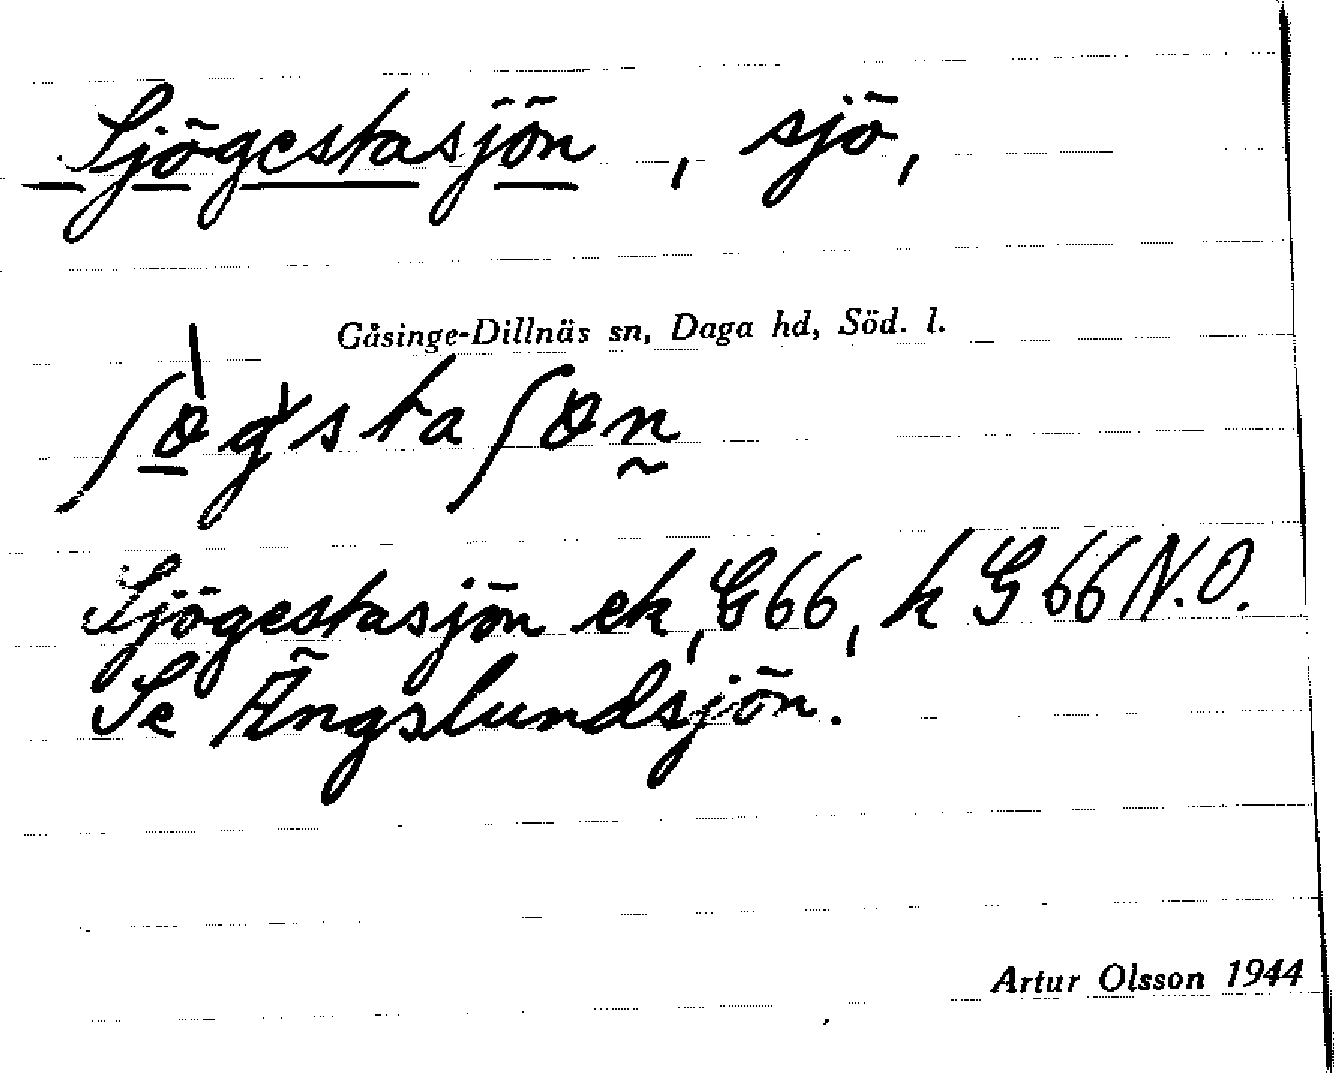 Sjögestasjön, sjö,
Gåsinge-Dillnäs sn, Daga hd, Söd. l.
Sjögestasjön ek, G66, k G 66 N.O.
Se Ängslundsjön.
Artur Olsson 1944